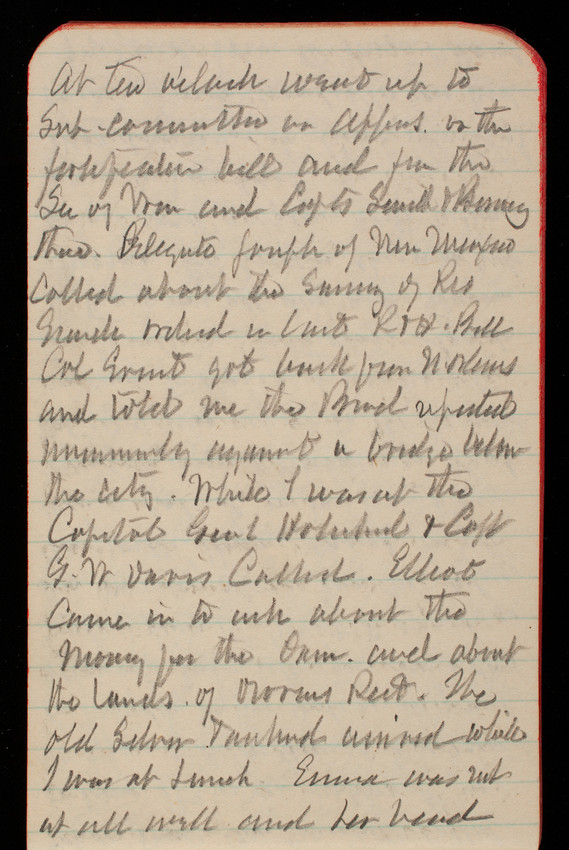 At ten o'clock went up to
Sub-committee on Appns. on the
fortification bill and for the
Sec of War and Capts Smith &
there. Delegate Joseph of New Mexico
Called about the Survey of Rio
Grande ordered in last R & H. Bill
Col Grant got back from N Orleans
and told me the Board reported
unanimously against a bridge below
the city. While I was at the
Capitol Genl & Capt
G. W Davis Called. Elliot
Came in to ask about the
Money for the Dam. and about
the lands of Rect. The
old Silver Tankard arrived while
I was at Lunch Emma was not
at all well and her head